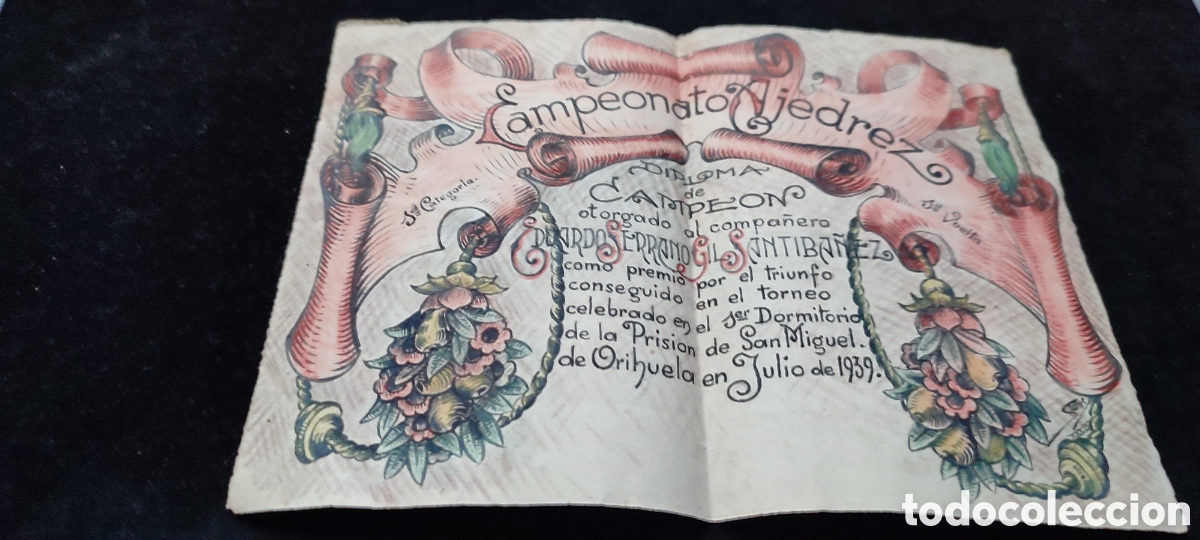 Campeonato Ajedrez
1ª Categoria.
DIPLOMA
de
CAMPEON
otorgado al compañero
EDUARDO SERRANO GIL SANTIBAÑEZ
como premio por el triunfo
conseguido en el torneo
celebrado en el 1er Dormitorio
de la Prision de San Miguel.
de Orihuela en Julio de 1939.
todocoleccion